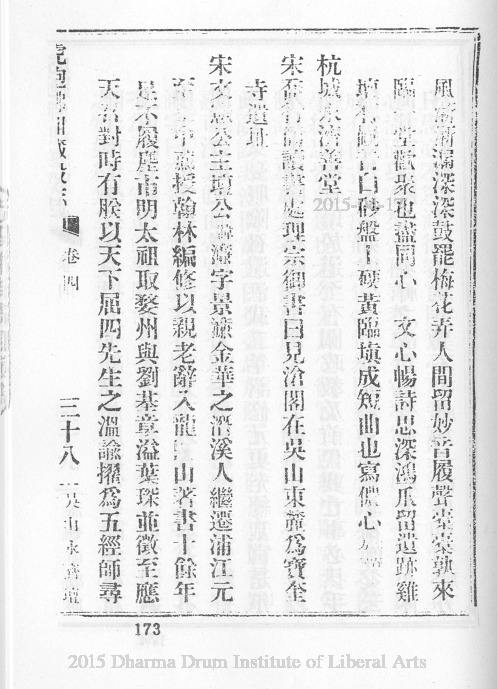 風瀟瀟滿深深鼓罷梅花弄人間留妙音履聲橐橐孰來
臨一堂歡聚也盍同心　文心暢詩思深鴻爪留遺跡雞
壇白砂盤上硬黃臨塡成短曲也寫儂心
杭城永濟善堂
宋 讀書處理宗御書曰見滄閣在吳山東麓爲寶奎
寺遺址
宋文憲公主壇公諱濂字景濂金華之潛溪人繼遷浦江元
至正中薦授翰林編修以親老辭入龍門山著書十餘年
足不履塵市明太祖取婺州與劉基章溢葉琛並徵至應
天召對時有朕以天下屈四先生之溫諭擢爲五經師尋
卷四
三十八
吳山永濟壇
173
2015 Dharma Drum Institute of Liberal Arts